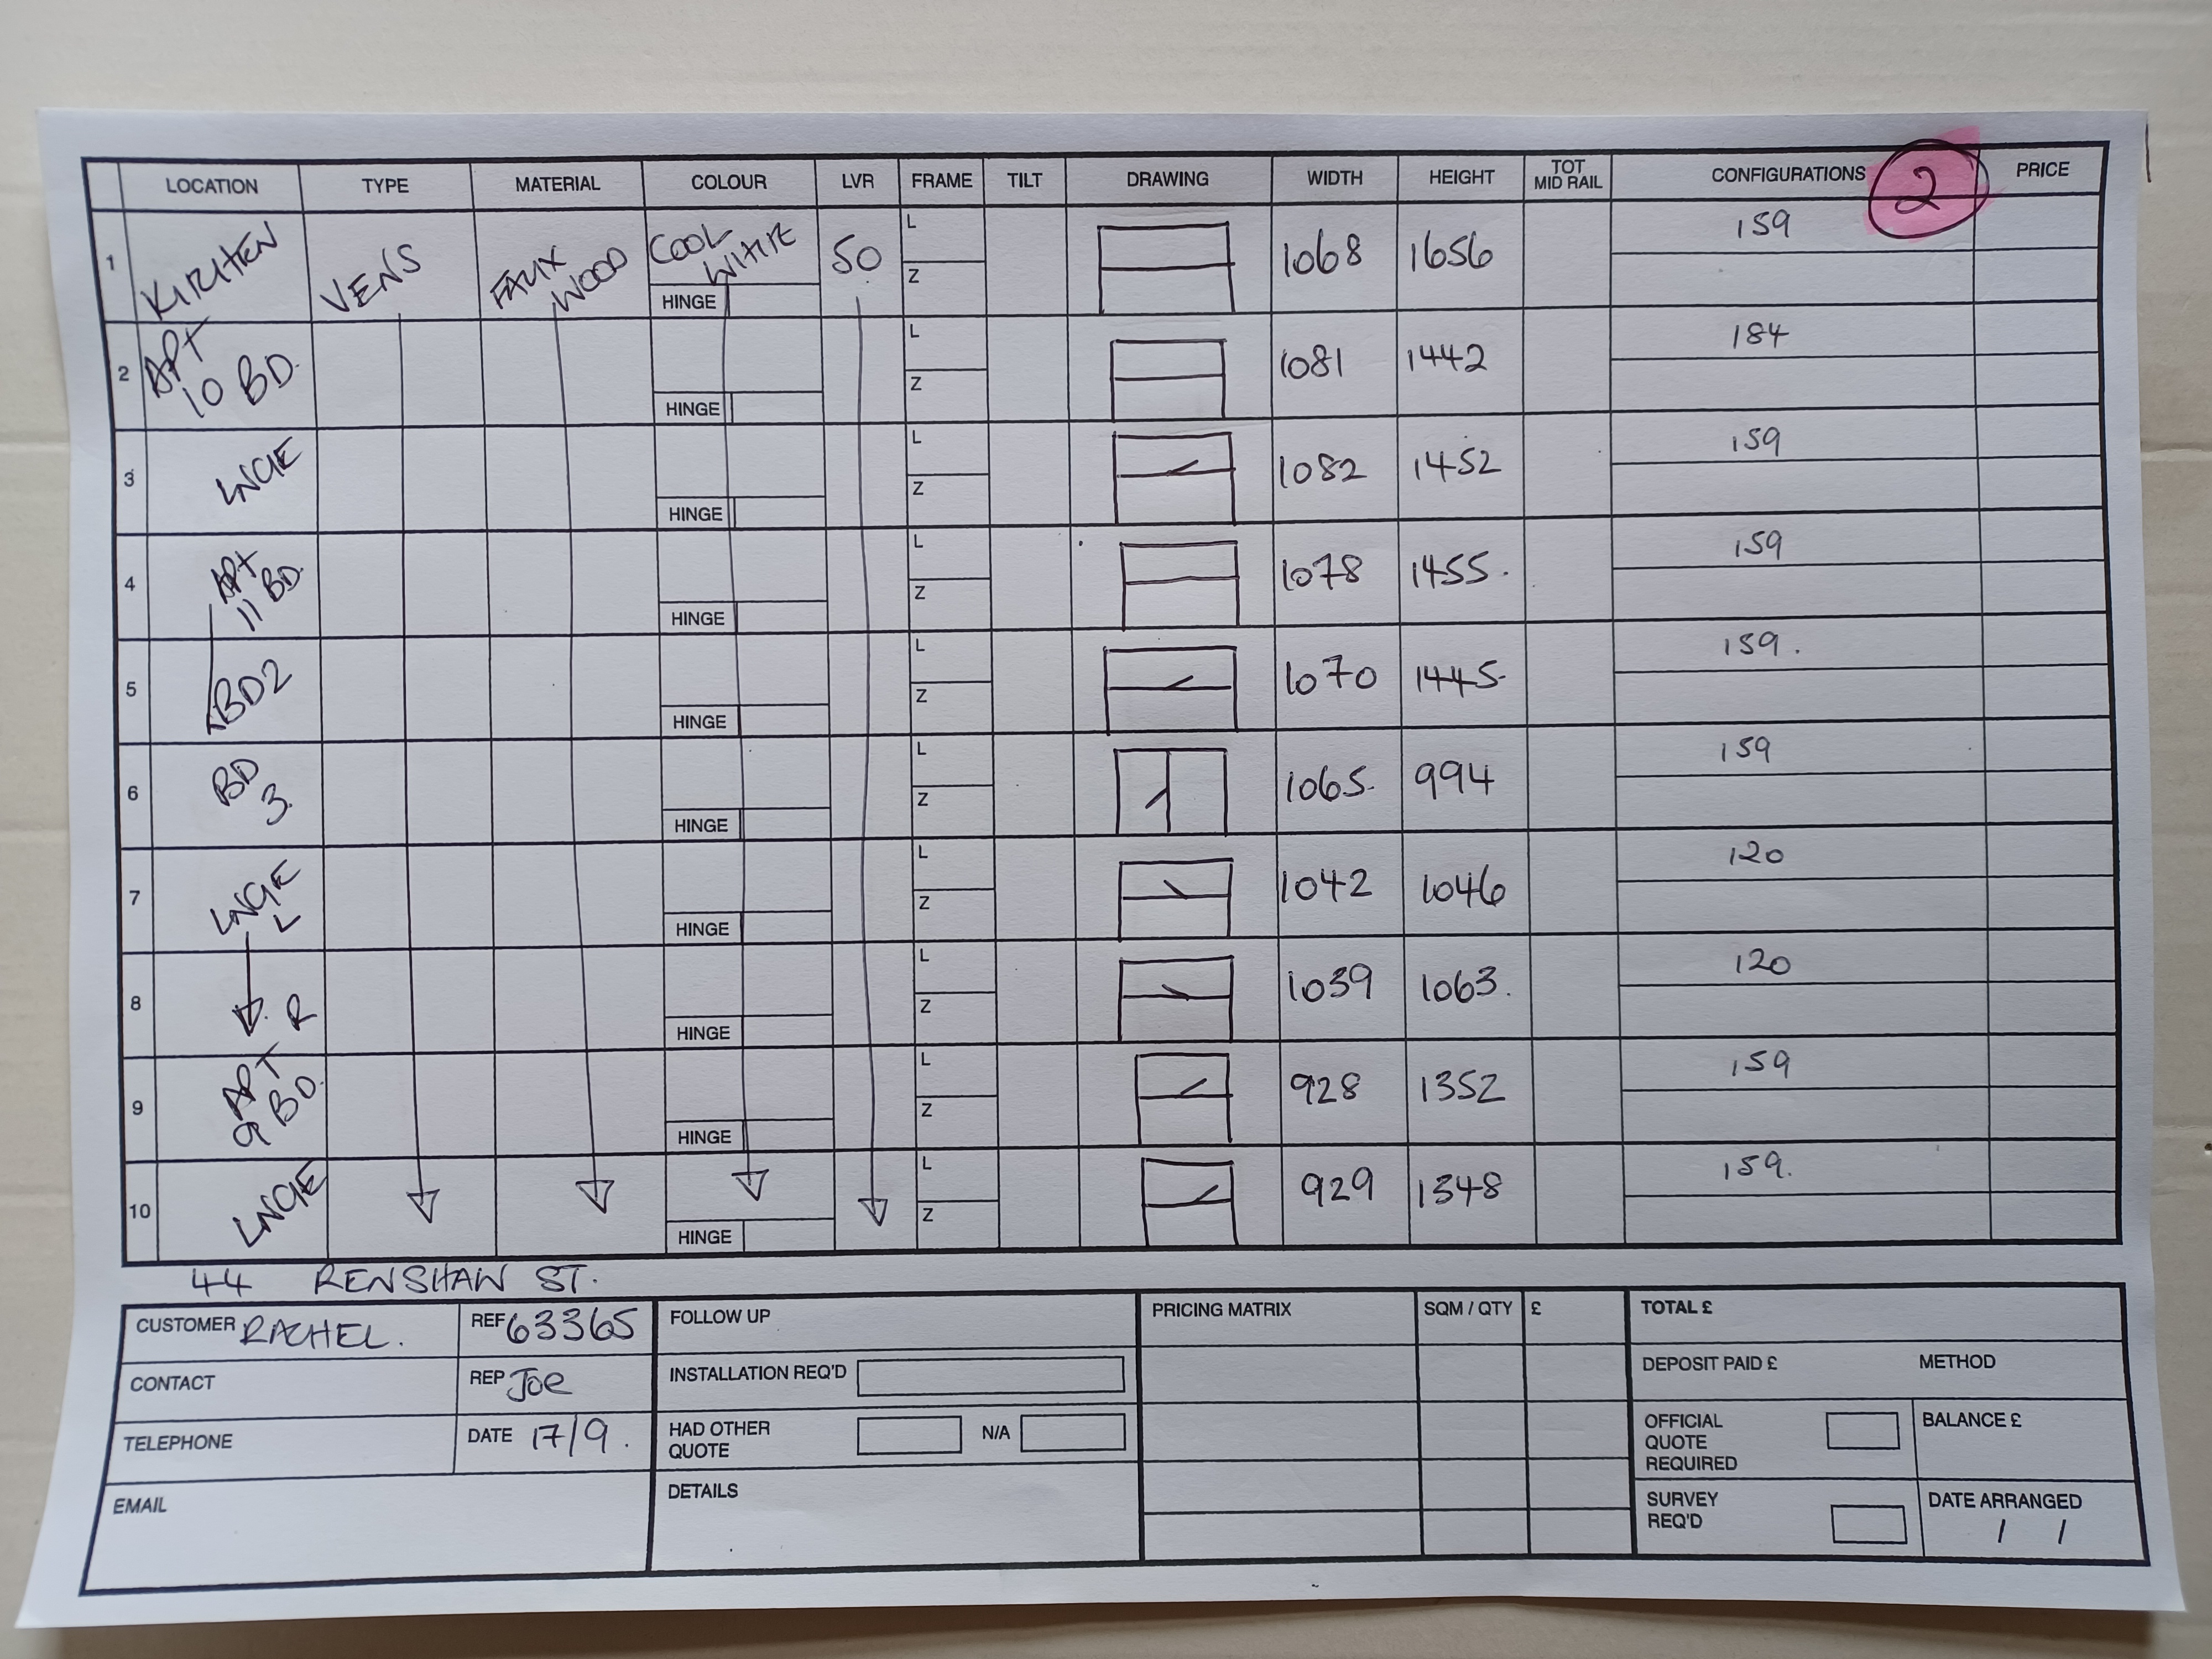 LOCATION TYPE MATERIAL COLOUR LVR FRAME TILT DRAWING WIDTH HEIGHT TOT MID RAIL CONFIGURATIONS 2 PRICE
1 KITCHEN VENS FAUX WOOD COOL WHITE HINGE 50 L Z 1068 1656 159
2 APT 10 BD. HINGE L Z 1081 1442 184
3 LNGE HINGE L Z 1082 1452 159
4 APT 11 BD. HINGE L Z 1078 1455. 159
5 BD2 HINGE L Z 1070 1445. 159.
6 BD 3. HINGE L Z 1065. 994 159
7 LNGE L HINGE L Z 1042 1046 120
8 R HINGE L Z 1039 1063. 120
9 APT 9 BD. HINGE L Z 928 1352 159
10 LNGE HINGE L Z 929 1348 159.
44 RENSHAW ST.
CUSTOMER RACHEL. REF 63365
CONTACT REP Joe
TELEPHONE DATE 17/9.
EMAIL
FOLLOW UP
INSTALLATION REQ'D
HAD OTHER QUOTE N/A
DETAILS
PRICING MATRIX SQM / QTY £
TOTAL £
DEPOSIT PAID £ METHOD
OFFICIAL QUOTE REQUIRED BALANCE £
SURVEY REQ'D DATE ARRANGED
/ /